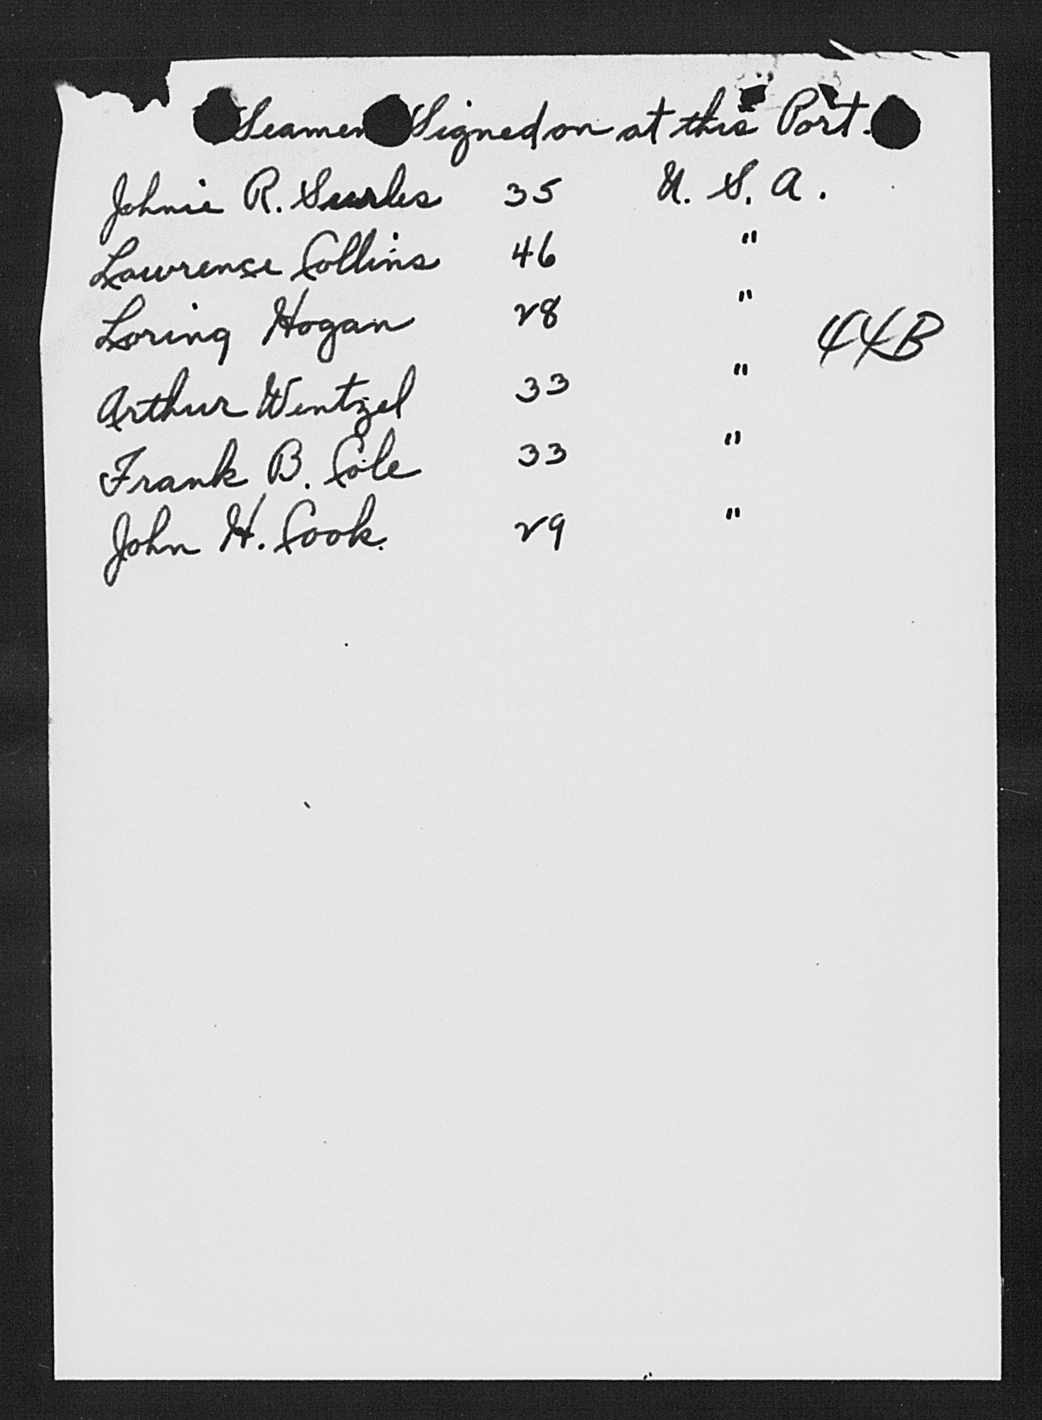 Seamen Signed on at this Port.
Johnie R. Surles 35 U. S. A.
Lawrence Collins 46 "
Loring Hogan 28 "
44B
Arthur Wentzel 33 "
Frank B. Cole 33 "
John H. Cook. 29 "